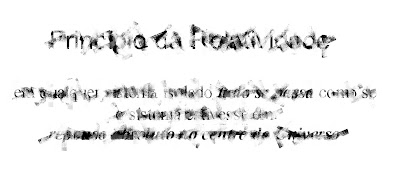 Princípio da Relatividade
em qualquer sistema isolado tudo se passa como se
o sistema estivesse em
repouso absoluto no centro do Universo